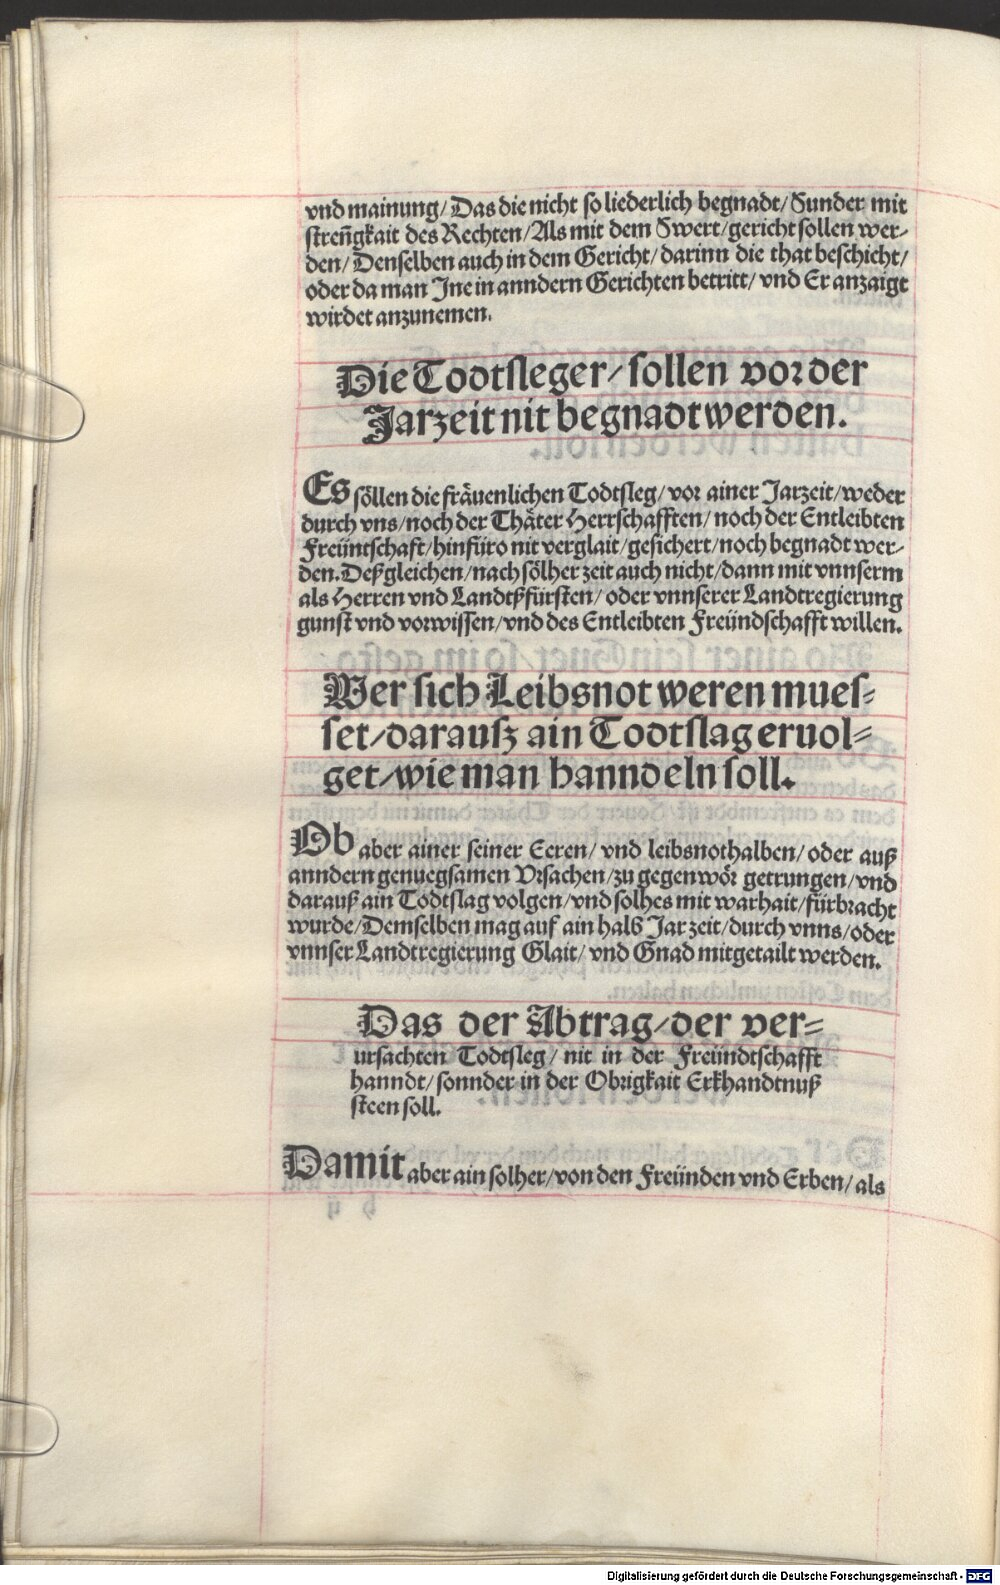 vnd mainung/ Das die nicht so liederlich begnadt/ Sunder mit
streñgkait des Rechten/ Als mit dem Swert/ gericht sollen wer-
den/ Denselben auch in dem Gericht/ darinn die that beschicht/
oder da man Jne in anndern Gerichten betritt/ vnd Er anzaigt
wirdet anzunemen.
Die Todtsleger/ sollen vor der
Jarzeit nit begnadt werden.
Es söllen die fräuenlichen Todtsleg/ vor ainer Jarzeit/ weder
durch vns/ noch der Thäter Herrschafften/ noch der Entleibten
Freüntschaft/ hinfüro nit verglait/ gesichert/ noch begnadt wer-
den. Deßgleichen/ nach sölher zeit auch nicht/ dann mit vnnserm
als Herren vnd Landtßfürsten/ oder vnnserer Landtregierung
gunst vnd vorwissen/ vnd des Entleibten Freündschafft willen.
Wer sich Leibsnot weren mues-
set/ darausz ain Todtslag eruol-
get/ wie man hanndeln soll.
Ob aber ainer seiner Eeren/ vnd leibsnothalben/ oder auß
anndern genuegsamen Vrsachen/ zu gegenwör getrungen/ vnd
darauß ain Todtslag volgen/ vnd solhes mit warhait/ fürbracht
wurde/ Demselben mag auf ain halb Jar zeit/ durch vnns/ oder
vnnser Landtregierung Glait/ vnd Gnad mitgetailt werden.
Das der Abtrag/ der ver-
ursachten Todtsleg/ nit in der Freündtschafft
hanndt/ sonnder in der Obrigkait Erkhandtnuß
steen soll.
Damit aber ain solher/ von den Freünden vnd Erben/ als
Digitalisierung gefördert durch die Deutsche Forschungsgemeinschaft - DFG